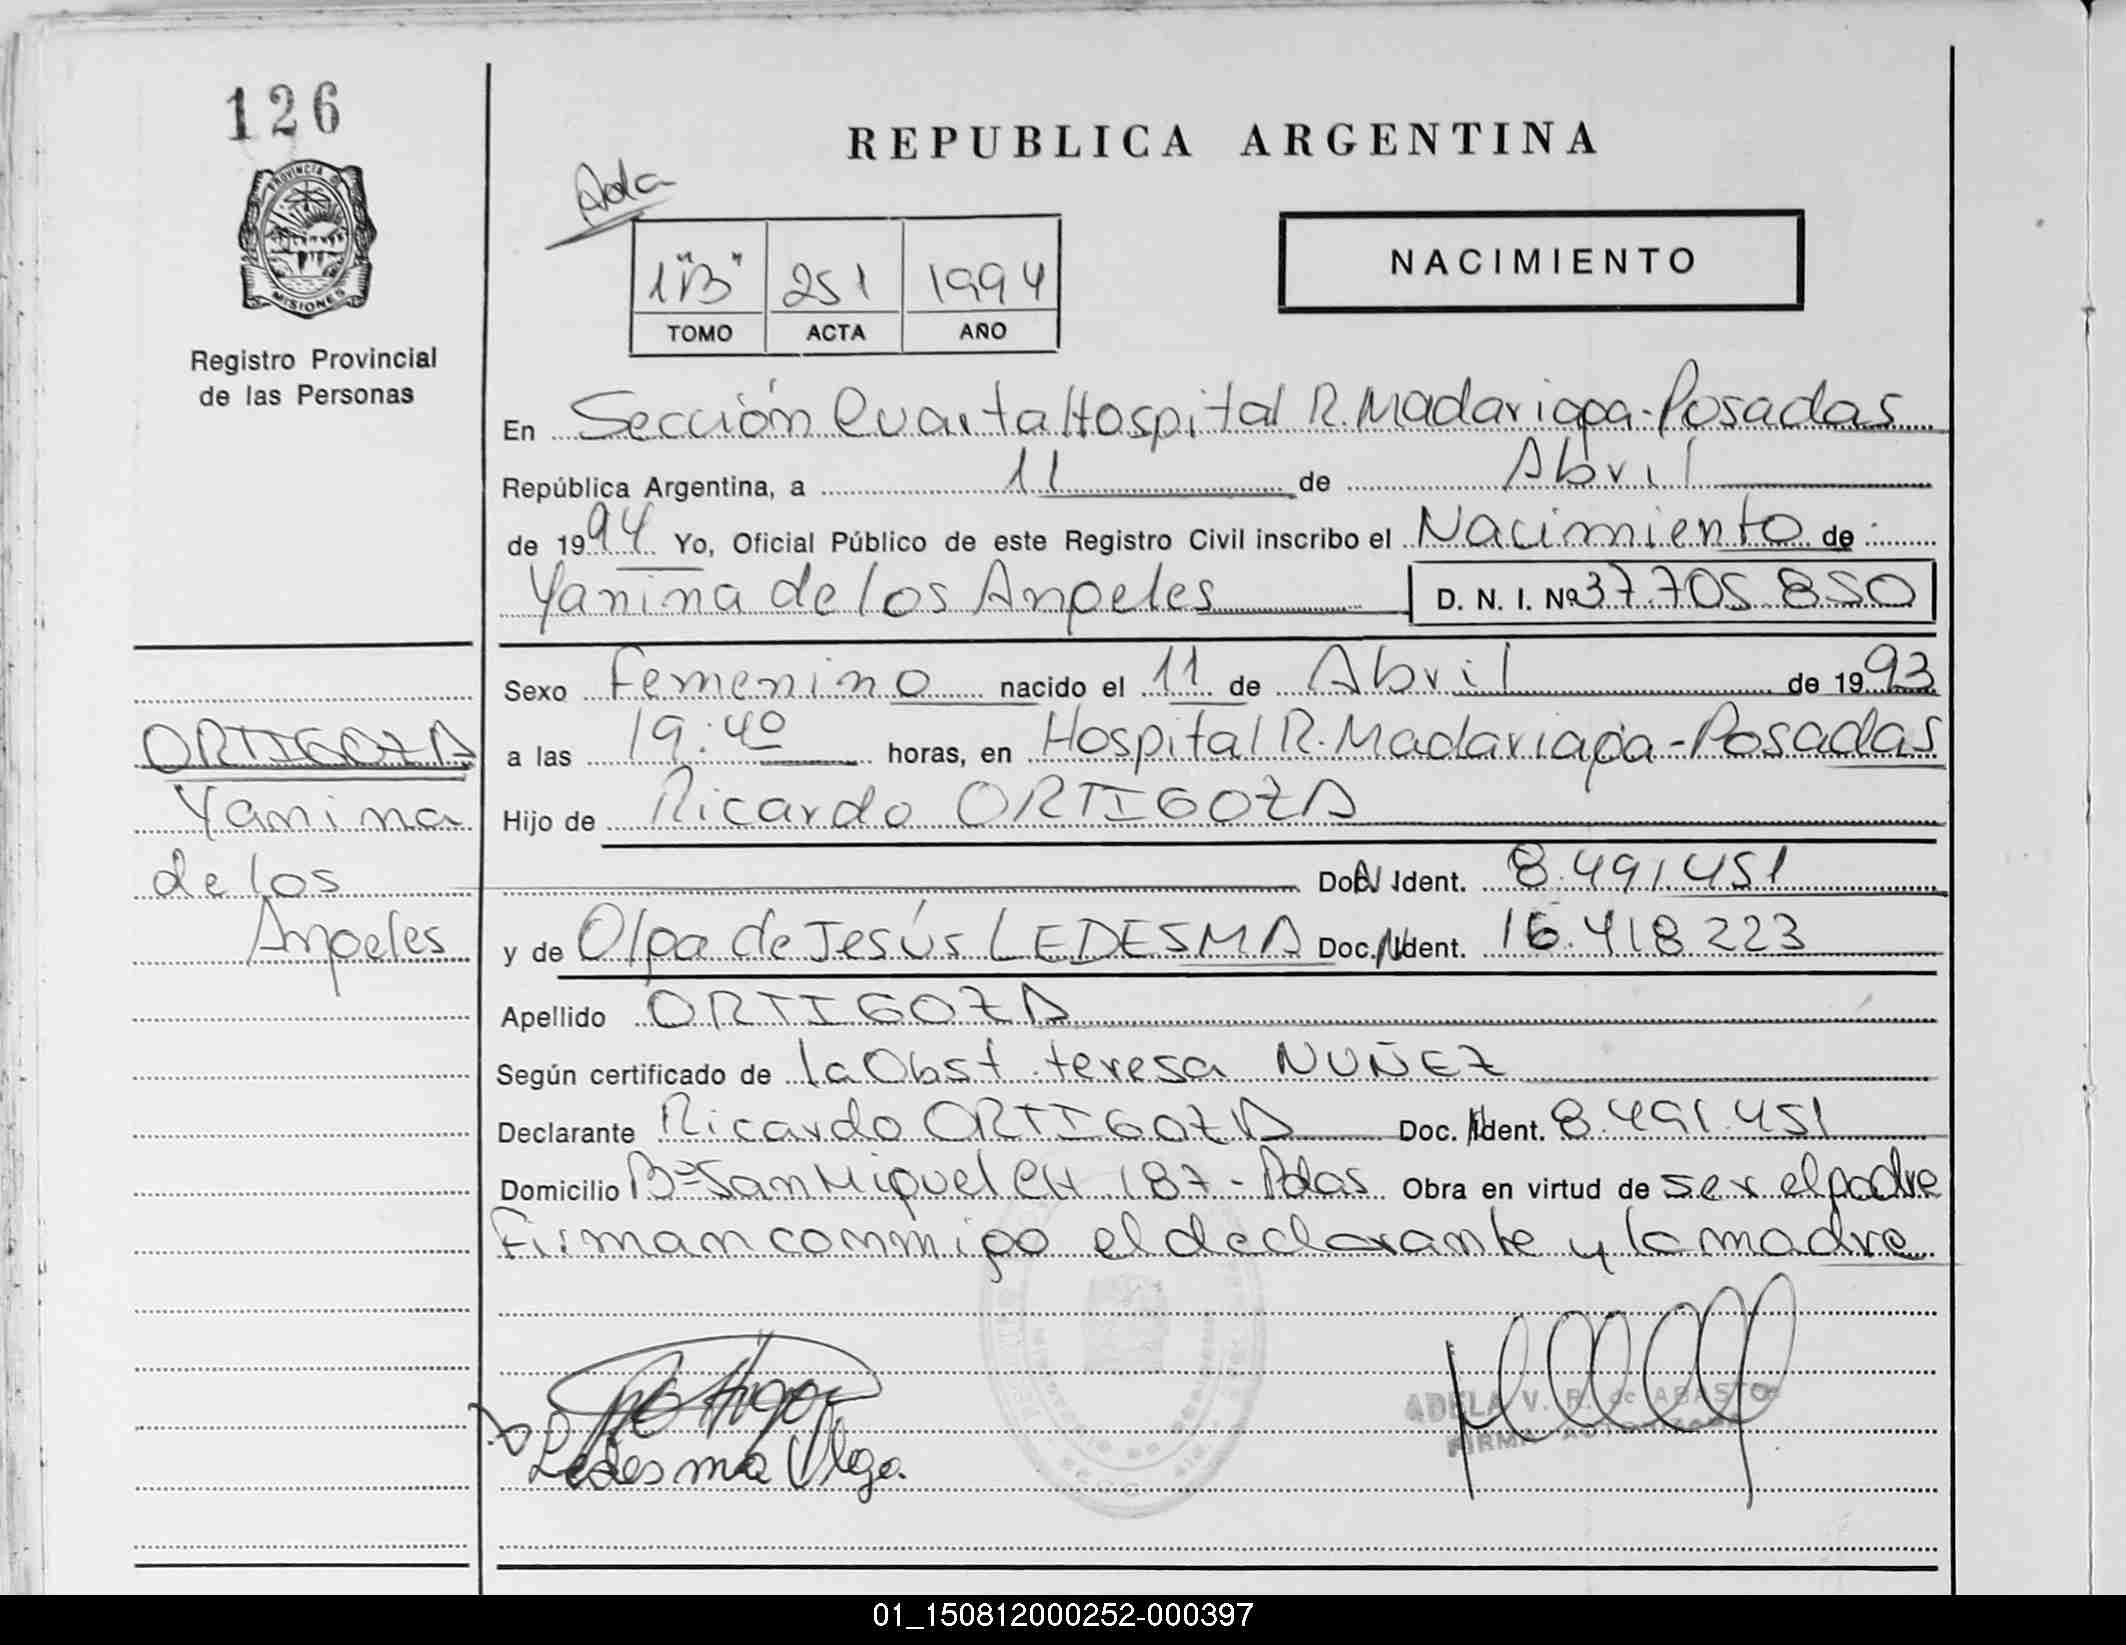 126
REPUBLICA ARGENTINA
PROVINCIA DE
MISIONES
Registro Provincial
de las Personas
Ada
1"B" 251 1994
TOMO ACTA AÑO
NACIMIENTO
En Sección Cuarta Hospital R. Madariaga-Posadas
República Argentina, a 11 de Abril
de 1994 Yo, Oficial Público de este Registro Civil inscribo el Nacimiento de
Yanina de los Angeles D. N. I. Nº 37.705.850
Sexo Femenino nacido el 11 de Abril de 1993
a las 19:40 horas, en Hospital R. Madariaga-Posadas
Hijo de Ricardo ORTIGOZA
Doc. Ident. 8.491.451
y de Olga de Jesús LEDESMA Doc. Ident. 16.418.223
Apellido ORTIGOZA
Según certificado de la Obst. teresa NUÑEZ
Declarante Ricardo ORTIGOZA Doc. Ident. 8.491.451
Domicilio Bº San Miguel CH 187 - Pdas Obra en virtud de ser el padre
Firman conmigo el declarante y la madre
ORTIGOZA
Yanina
de los
Angeles
Ledesma Olga.
ADELA V. R. de ABASTO
FIRMA AUTORIZADA
01_150812000252-000397